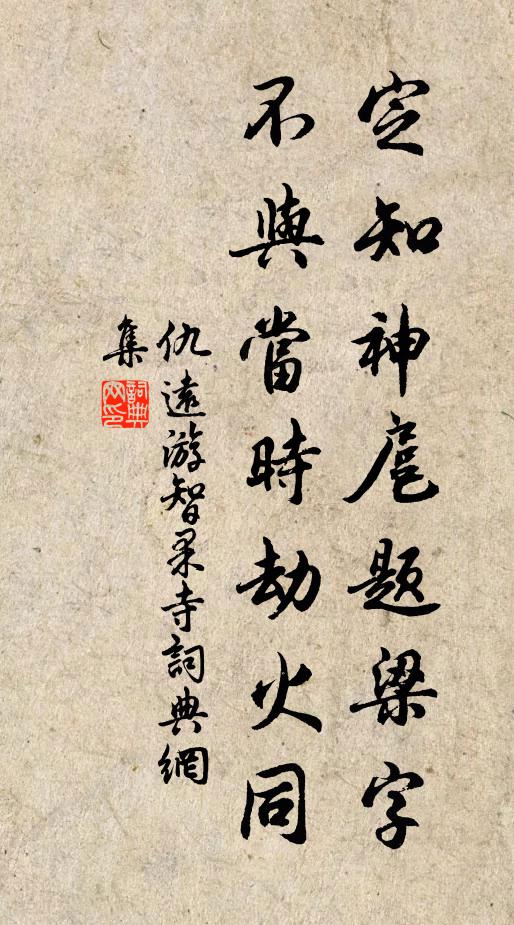 定知神扈题梁字
不與當時劫火同
仇遠游智果寺詞典網
集
詞典
网印